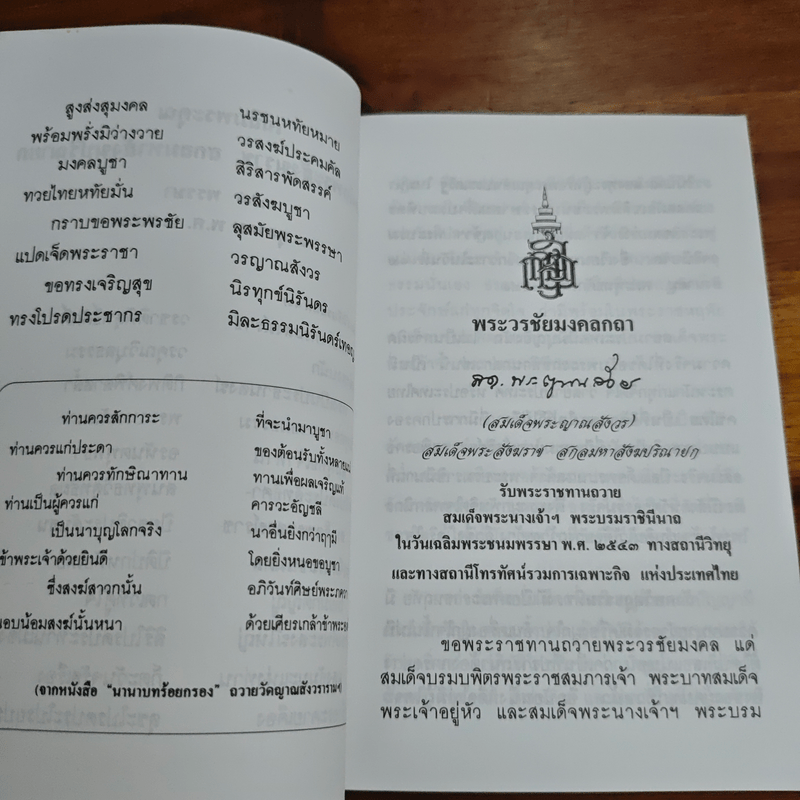 สูงส่งสุมงคล นรชนหทัยหมาย
พร้อมพรั่งมิว่างวาย วรสงฆ์ประคมคัล
มงคลบูชา สิริสารพัดสรรค์
ทวยไทยหทัยมั่น วรสังฆบูชา
กราบขอพระพรชัย ลุสมัยพระพรรษา
แปดเจ็ดพระราชา วรญาณสังวร
ขอทรงเจริญสุข นิรทุกข์นิรันดร
ทรงโปรดประชากร มิละธรรมนิรันดร์เทอญ
ท่านควรสักการะ ที่จะนำมาบูชา
ท่านควรแก่ประดา ของต้อนรับทั้งหลาย
ท่านควรทักษิณาทาน ทานเพื่อผลเจริญแท้
ท่านเป็นผู้ควรแก่ คารวะอัญชลี
เป็นนาบุญโลกจริง นาอื่นยิ่งกว่าฤๅมี
ข้าพระเจ้าด้วยยินดี โดยยิ่งหนอขอบูชา
ซึ่งสงฆ์สาวกนั้น อภิวันท์ศิษย์พระ
นอบน้อมสงฆ์นั้นหนา ด้วยเศียรเกล้าข้าพระ
(จากหนังสือ "นานาบทร้อยกรอง" ถวายวัดญาณสังวรารามฯ)
พระวรชัยมงคลกถา
(สมเด็จพระญาณสังวร)
สมเด็จพระสังฆราช สกลมหาสังฆปริณายก
รับพระราชทานถวาย
สมเด็จพระนางเจ้าฯ พระบรมราชินีนาถ
ในวันเฉลิมพระชนมพรรษา พ.ศ. ๒๕๔๓ ทางสถานีวิทยุ
และทางสถานีโทรทัศน์รวมการเฉพาะกิจ แห่งประเทศไทย
ขอพระราชทานถวายพระวรชัยมงคล แด่
สมเด็จบรมบพิตรพระราชสมภารเจ้า พระบาทสมเด็จ
พระเจ้าอยู่หัว และสมเด็จพระนางเจ้าฯ พระบรม